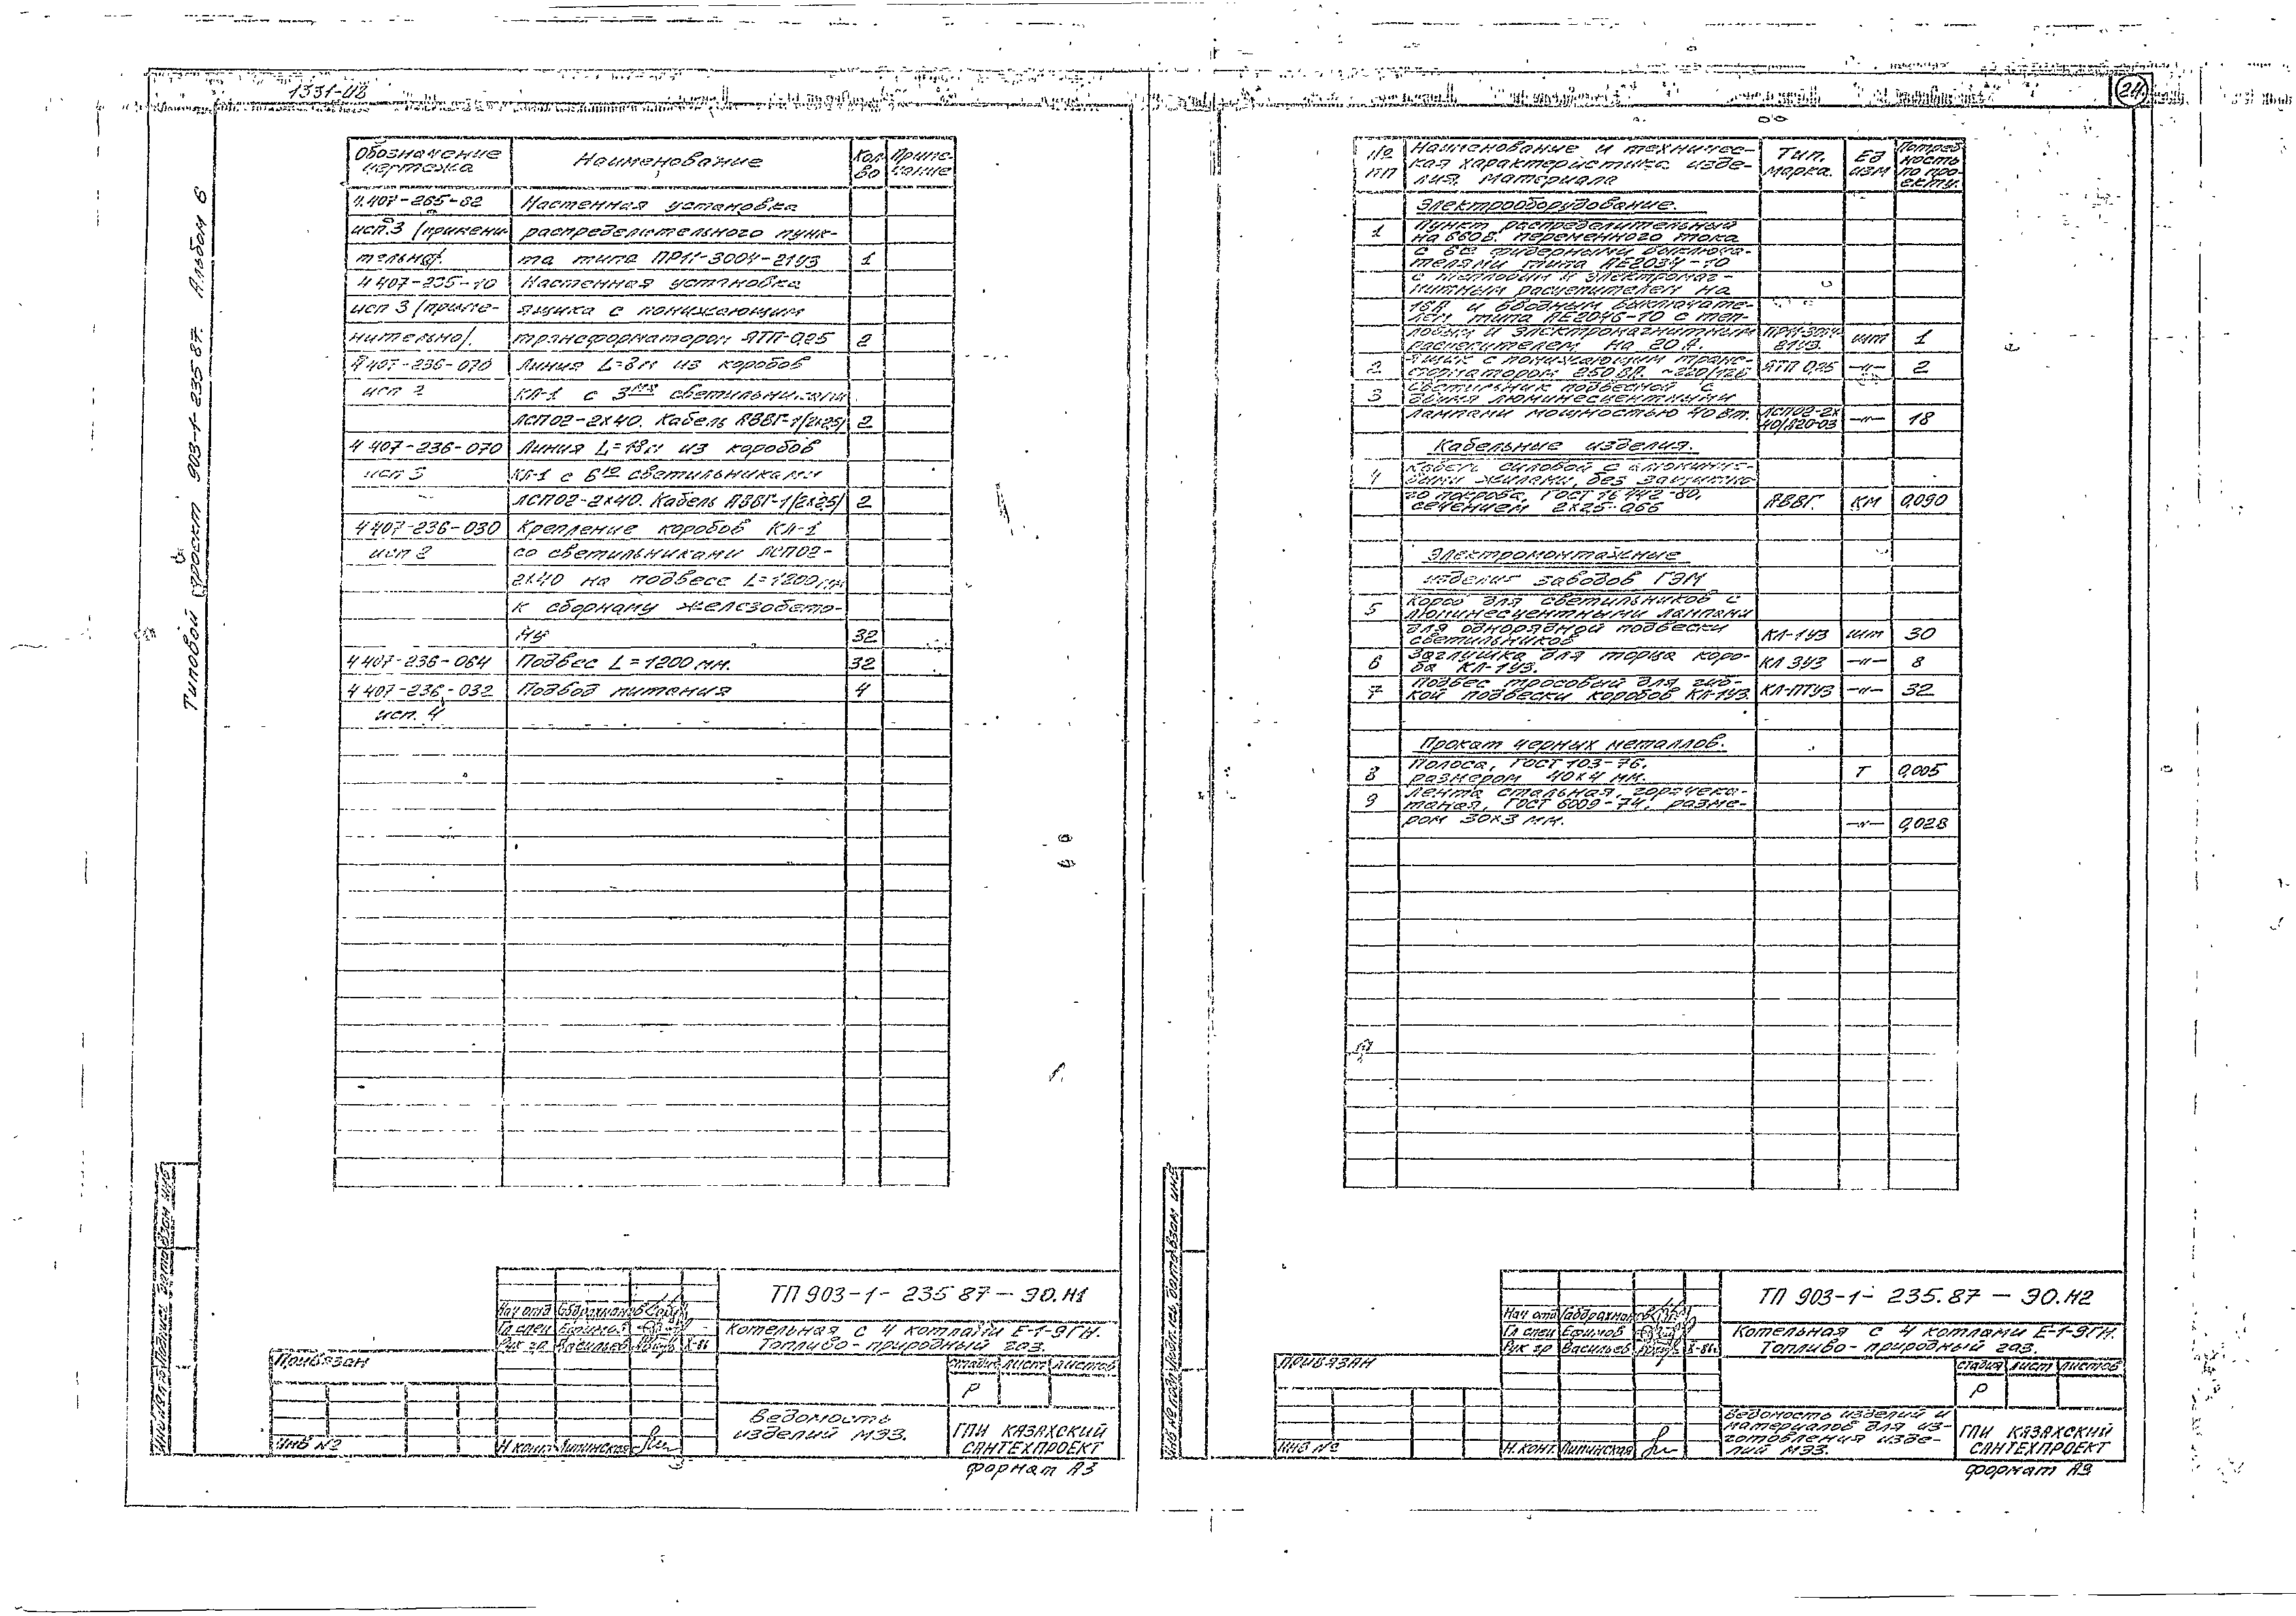 Типовой проект 903-1-235 87. Альбом 6
Обозначение чертежа | Наименование | Кол-во | Приме-чание
4.407-265-62 | Настенная установка
исп.3 /примени | распределительного пунк-
тельно/. | та типа ПР11-3004-21У3 | 1
4 407-235-10 | Настенная установка
исп 3 /приме- | ящика с понижающим
нительно/. | трансформатором ЯТП-0,25 | 2
4 407-236-070 | Линия L=8м из коробов
исп 2 | КЛ-1 с 3мя светильниками
ЛСП02-2х40. Кабель АВВГ-1/2х2,5/ | 2
4 407-236-070 | Линия L=18м из коробов
исп 3 | КЛ-1 с 6ю светильниками
ЛСП02-2х40. Кабель АВВГ-1/2х2,5/ | 2
4 407-236-030 | Крепление коробов КЛ-1
исп 2 | со светильниками ЛСП02-
2х40 на подвесе L=1200мм
к сборному железобето-
ну | 32
4 407-236-064 | Подвес L=1200 мм. | 32
4 407-236-032 | Подвод питания | 4
исп. 4
ТП 903-1-235 87-ЭО.Н1
Нач отд
Гл спец Ефимов
Рук гр Васильев X-86
Котельная с 4 котлами Е-1-9ГН.
Топливо-природный газ.
Привязан
Стадия лист листов
Р
Ведомость
изделий МЭЗ.
ГПИ КАЗАХСКИЙ
САНТЕХПРОЕКТ
Инв №
Н конт. Липинская
формат А3
24.
№ пп | Наименование и техничес-
кая характеристика изде-
лия, материала | Тип, марка. | Ед изм | Потреб ность по про-екту.
Электрооборудование.
1 | Пункт распределительный
на 660В. переменного тока
с 6ю фидерными выключа-
телями типа АЕ2034-10
с тепловым и электромаг-
нитным расцепителем на
16А и вводным выключате-
лем типа АЕ2046-10 с теп-
ловым и электромагнитным
расцепителем на 20 А. | ПР11-3004-21У3. | шт | 1
2 | Ящик с понижающим транс-
форматором 250 ВА. ~220/12В | ЯТП 0,25 | -"- | 2
3 | Светильник подвесной с
двумя люминесцентными
лампами мощностью 40 Вт. | ЛСП02-2х40/Д20-03 | -"- | 18
Кабельные изделия.
4 | Кабель силовой с алюминие-
выми жилами, без защитно-
го покрова, ГОСТ 16 442-80,
сечением 2х2,5-0,66 | АВВГ. | КМ | 0,090
Электромонтажные
изделия заводов ГЭМ
5 | Короб для светильников с
люминесцентными лампами
для однорядной подвески
светильников | КЛ-1У3 | шт | 30
6 | Заглушка для торца коро-
ба КЛ-1У3. | КЛ 3У3 | -"- | 8
7 | Подвес тросовый для гиб-
кой подвески коробов КЛ-1У3. | КЛ-ПТУ3 | -"- | 32
Прокат черных металлов.
8 | Полоса, ГОСТ 103-76,
размером 40х4 мм. | Т | 0,005
9 | Лента стальная, горячека-
таная, ГОСТ 6009-74. разме-
ром 30х3 мм. | -"- | 0,028
ТП 903-1-235.87-ЭО.Н2
Нач отд Габдрахманов
Гл спец Ефимов
Рук гр Васильев X-86
Котельная с 4 котлами Е-1-9ГН.
Топливо-природный газ.
ПРИВЯЗАН
стадия лист листов
Р
Ведомость изделий и
материалов для из-
готовления изде-
лий МЭЗ.
ГПИ КАЗАХСКИЙ
САНТЕХПРОЕКТ
Инв №
Н.конт. Липинская
формат А3
Инв № подл Подпись, дата Взам инв